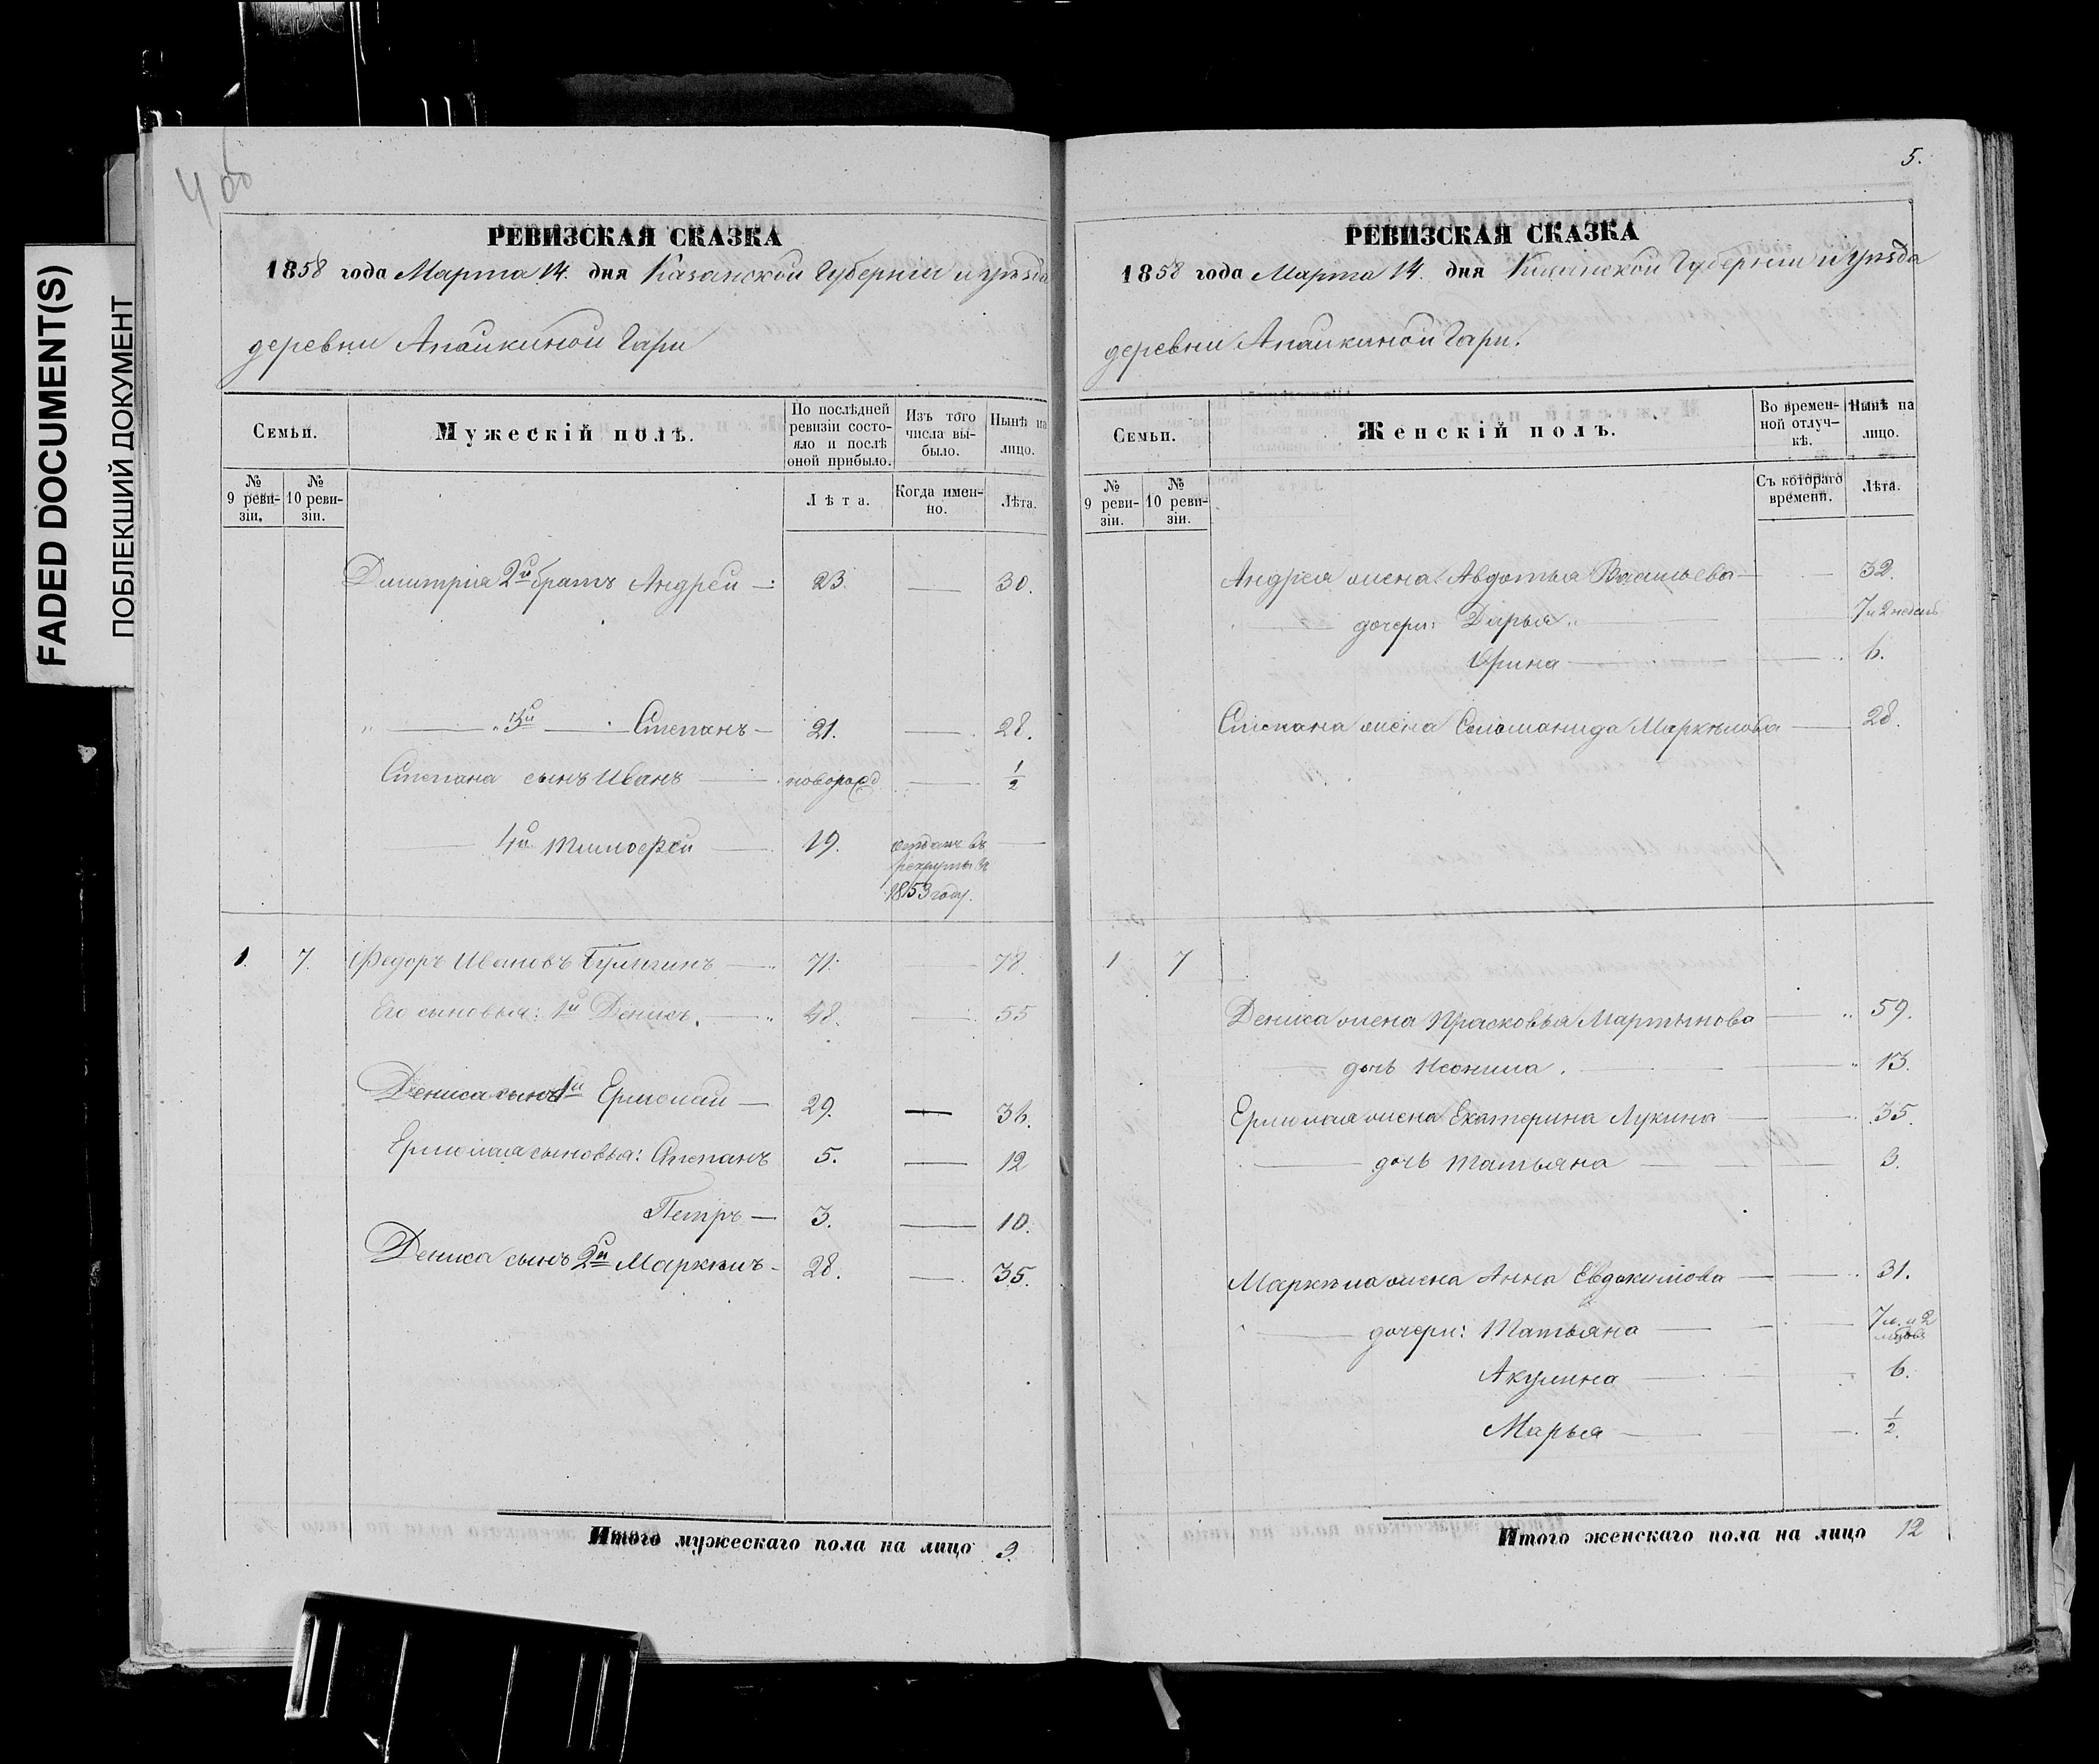 FADED DOCUMENT(S)
ПОБЛЕКШИЙ ДОКУМЕНТ
4 об
РЕВИЗСКАЯ СКАЗКА
1858 года Марта 14. дня Казанской Губернии и уѣзда
деревни Апайкиной Гари
Семьи.
Мужескій полъ.
По послѣдней ревизіи состояло и послѣ оной прибыло.
Изъ того числа выбыло.
Нынѣ на лицо.
№ 9 ревизіи.
№ 10 ревизіи.
Лѣта.
Когда именно.
Лѣта.
Димитрія 2й братъ Андрей — 23. — 30.
„ — „ 3й — Степанъ — 21. — 28.
Степана сынъ Иванъ — новорожд — 1/2
— 4й Тимофей — 19. отданъ въ рекруты въ 1853 году. —
1. 7. Федоръ Ивановъ — 71. — 78.
Его сыновья: 1й Денисъ. — 48. — 55
Дениса сынъ 1й Ермолай — 29. — 36.
Ермолая сыновья: Степанъ 5. — 12
Петръ — 3. — 10.
Дениса сынъ 2й Маркелъ — 28. — 35.
Итого мужескаго пола на лицо 9.
5.
РЕВИЗСКАЯ СКАЗКА
1858 года Марта 14. дня Казанской Губерніи и уѣзда
деревни Апайкиной Гари.
Семьи.
Женскій полъ.
Во временной отлучкѣ.
Нынѣ на лицо.
№ 9 ревизіи.
№ 10 ревизіи.
Съ котораго времени.
Лѣта.
Андрея жена Авдотья Васильева — 32.
дочери: Дарья — 7 и 2 недель
Ирина — 6.
Степана жена Соломонида Маркелова — 28.
1 7
Дениса жена Прасковья Мартынова — 59.
дочь Неонила. — 13.
Ермолая жена Екатерина Лукина — 35.
дочь Татьяна — 3.
Маркела жена Анна Евдокимова — 31.
дочери: Татьяна — 7 л. и 2
Акулина — 6.
Марья — 1/2.
Итого женскаго пола на лицо 12